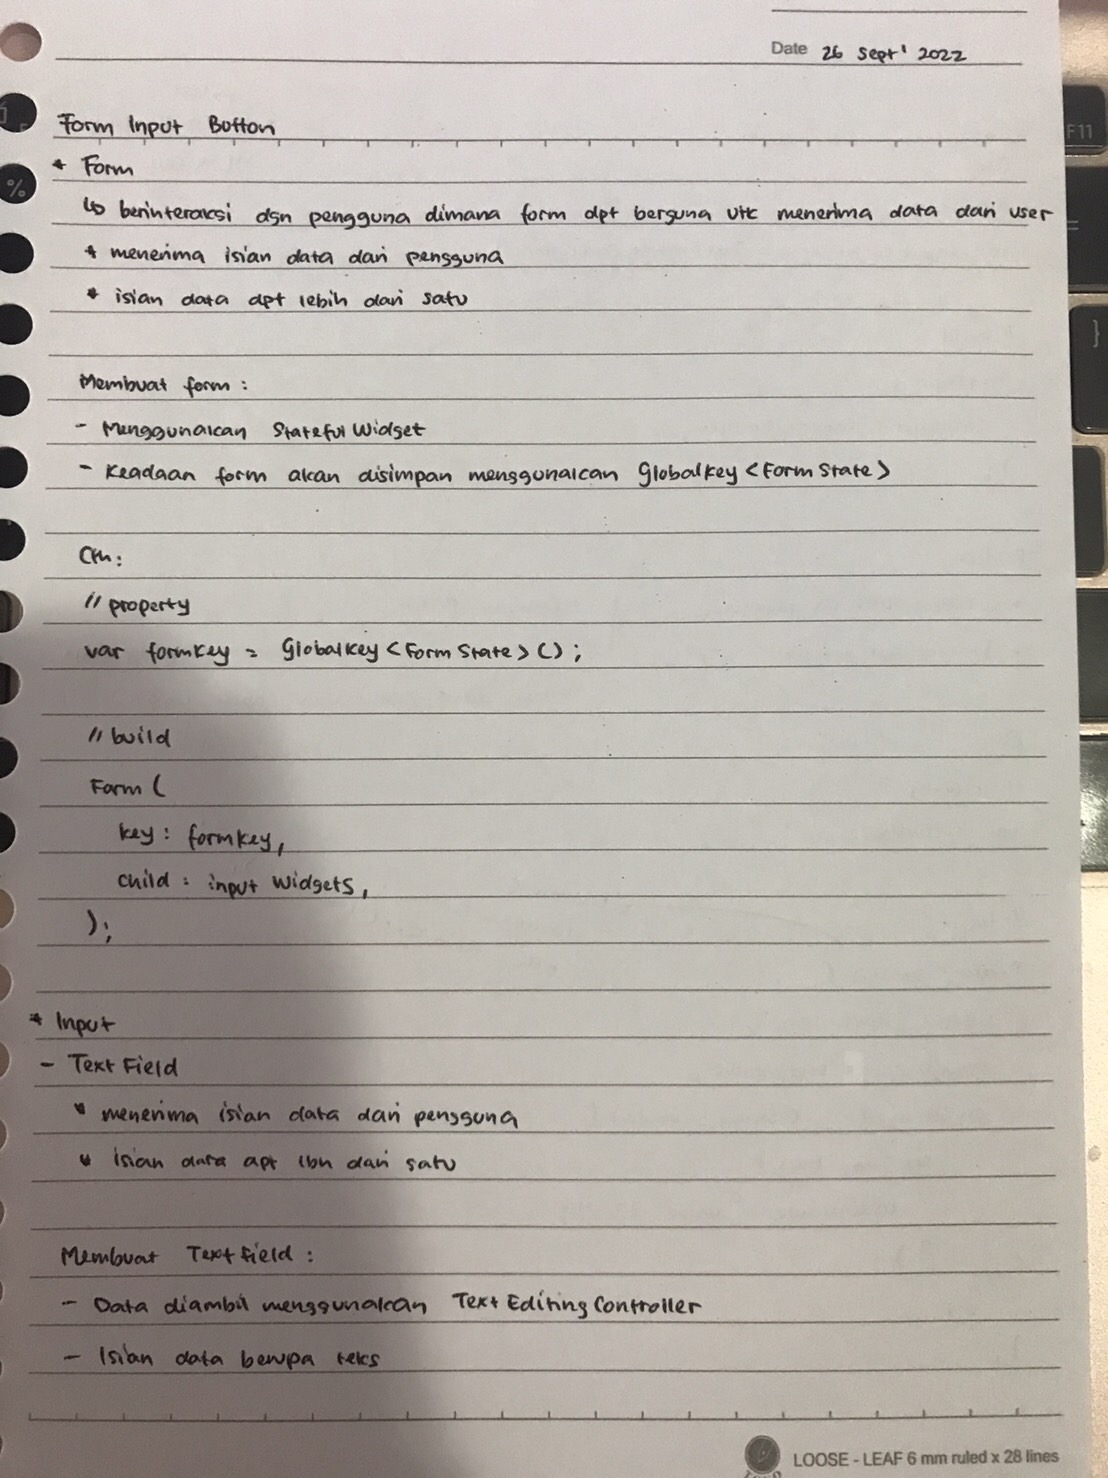 Date 26 Sept' 2022
Form Input Button
* Form
↳ berinteraksi dgn pengguna dimana form dpt berguna utk menerima data dari user
* menerima isian data dari pengguna
* isian data dpt lebih dari satu
Membuat form :
- Menggunakan Stateful Widget
- Keadaan form akan disimpan menggunakan GlobalKey <Form State>
Cth :
// property
var formkey = GlobalKey <Form State> () ;
// build
Form (
key : formkey,
child : input widgets,
);
* Input
- Text Field
* menerima isian data dari pengguna
* isian data dpt lbh dari satu
Membuat Text field :
- Data diambil menggunakan Text Editing Controller
- Isian data berupa teks
LOOSE - LEAF 6 mm ruled x 28 lines
F11
%
=
}